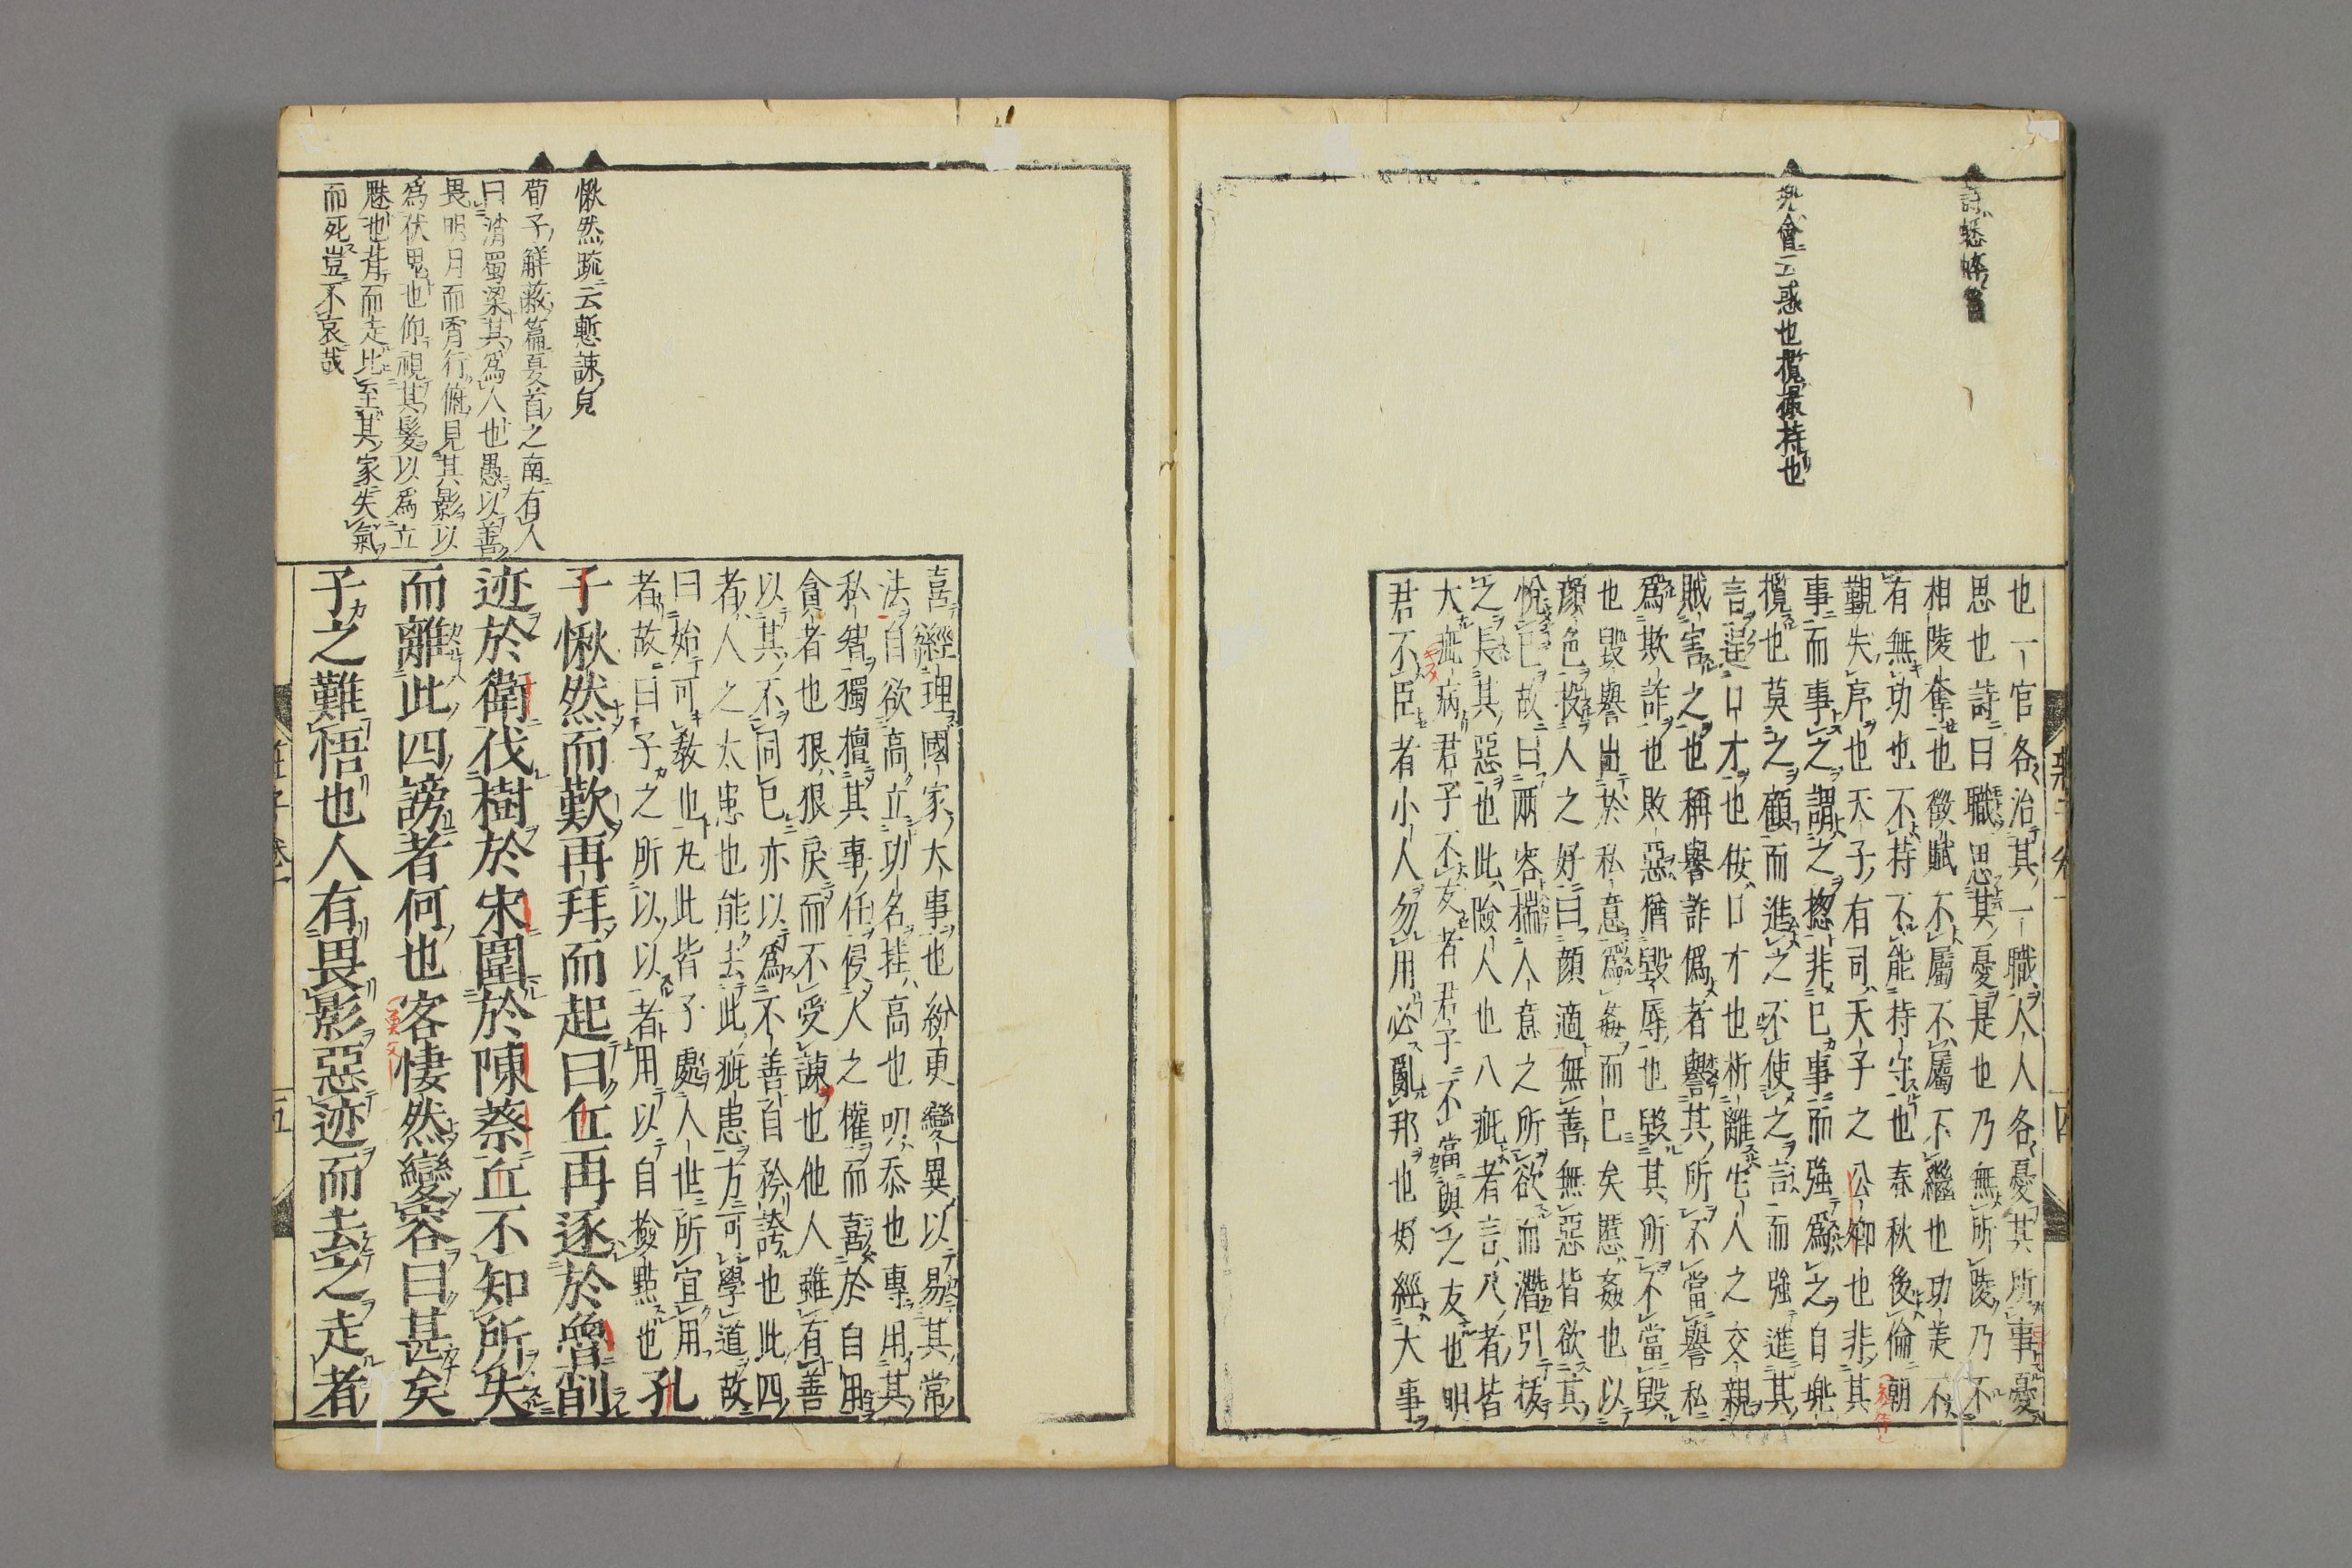 也一官各治其一職人人各憂其所事憂
思也詩曰職思其憂是也乃無所陵乃不
相陵奪也徵賦不屬不屬不繼也功美不
有無功也不持不能持守也春秋後倫朝
覲失序也天子有司天子之公卿也非其
事而事之謂之摠非已事而強爲之自兠
攬也莫之顧而進之不使之言而強進其
言逞口才也佞口才也析離他人之交親
賊害之也稱譽詐僞者譽其所不當譽私
爲欺詐也敗惡猶毀辱也毀其所不當毀
也毀譽出於私意爲姦而已矣慝姦也以
顏色投人之好曰顏適無善無惡皆欲其
悅已故曰兩容揣人意之所欲而潛引拔
之長其惡也此險人也八疵者言八者皆
大疵病君子不友者君子不當與之友也明
君不臣者小人勿用必亂邦也好經大事
會云惑也攬撮持也
喜經理國家大事也紛更變異以易其常
法自欲高立功名挂高也叨忝也專用其
私智獨擅其事任侵人之權而喜於自用
貪者也狠狠戾而不受諫也他人雖有善
以其不同已亦以爲不善自矜誇也此四
者人之太患也能去此疵患方可學道故
曰始可敎也凡此皆子處人世所宜用
者故曰子之所以以者用以自撿點也孔
子愀然而歎再拜而起曰丘再逐於魯削
迹於衛伐樹於宋圍於陳蔡丘不知所失
而離此四謗者何也客悽然變容曰甚矣
子之難悟也人有畏影惡迹而去之走者
愀然疏云慙諫皃
荀子解蔽篇夏首之南有人
曰涓蜀梁其爲人也愚以善
畏明月而宵行俯見其影以
爲伏鬼也仰視其髮以爲立
魅也背而走比至其家失氣
而死豈不哀哉